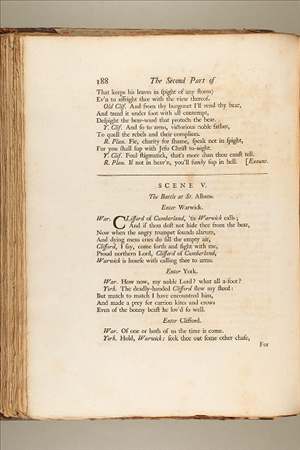 188 The Second Part of
That keeps his leaves in spight of any storm)
Ev'n to affright thee with the view thereof.
Old Clif. And from thy burgonet I'll rend thy bear,
And tread it under foot with all contempt,
Despight the bear-ward that protects the bear.
Y. Clif. And so to arms, victorious noble father,
To quell the rebels and their complices.
R. Plan. Fie, charity for shame, speak not in spight,
For you shall sup with Jesu Christ to-night.
Y. Clif. Foul stigmatick, that's more than thou canst tell.
R. Plan. If not in heav'n, you'll surely sup in hell. [Exeunt.
SCENE V.
The Battle at St. Albans.
Enter Warwick.
War. CLifford of Cumberland, 'tis Warwick calls;
And if thou dost not hide thee from the bear,
Now when the angry trumpet sounds alarum,
And dying mens cries do fill the empty air,
Clifford, I say, come forth and fight with me,
Proud northern Lord, Clifford of Cumberland,
Warwick is hoarse with calling thee to arms.
Enter York.
War. How now, my noble Lord? what all a-foot?
York. The deadly-handed Clifford slew my steed:
But match to match I have encountred him,
And made a prey for carrion kites and crows
Even of the bonny beast he lov'd so well.
Enter Clifford.
War. Of one or both of us the time is come.
York. Hold, Warwick: seek thee out some other chase,
For